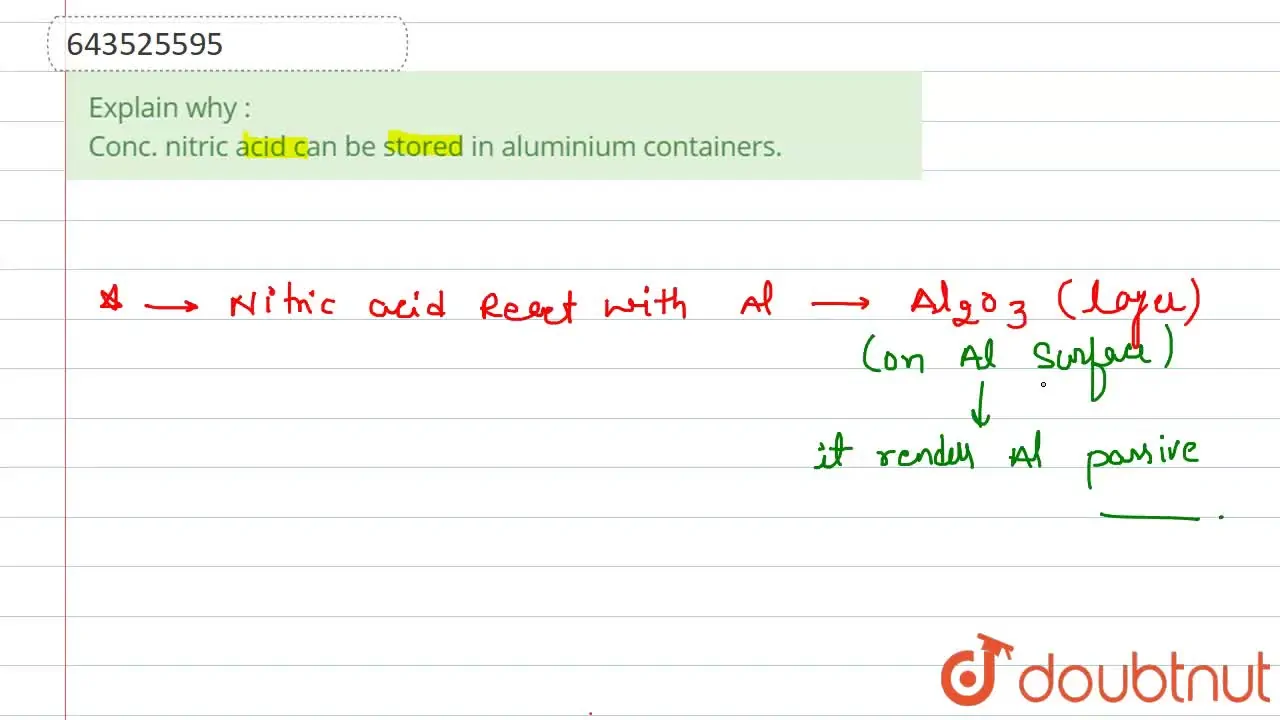 643525595
Explain why :
Conc. nitric acid can be stored in aluminium containers.
→ Nitric acid React with Al → Al2O3 (layer)
(on Al Surface)
↓
it renders Al passive
doubtnut